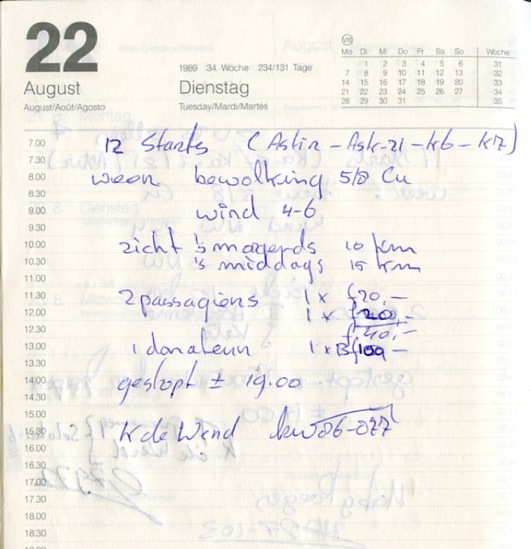 22
August
August/Août/Agosto
1989 34. Woche 234/131 Tage
Dienstag
Tuesday/Mardi/Martes
VIII
Mo Di Mi Do Fr Sa So Woche
1 2 3 4 5 6 31
7 8 9 10 11 12 13 32
14 15 16 17 18 19 20 33
21 22 23 24 25 26 27 34
28 29 30 31 35
7.00 12 Starts (Astir - Ask-21 - K6 - K7)
7.30
8.00 weer bewolking 5/8 Cu
8.30
9.00 wind 4-6
9.30
10.00 zicht 's morgends 10 km
10.30 's middags 15 km
11.00
11.30 2 passagiers 1 x f20,-
12.00 1 x f20,-
12.30 f40,-
13.00 1 donateur 1 x f100,-
13.30
14.00 gestopt ± 19.00
14.30
15.00
15.30 K de Wend
16.00
16.30
17.00
17.30
18.00
18.30